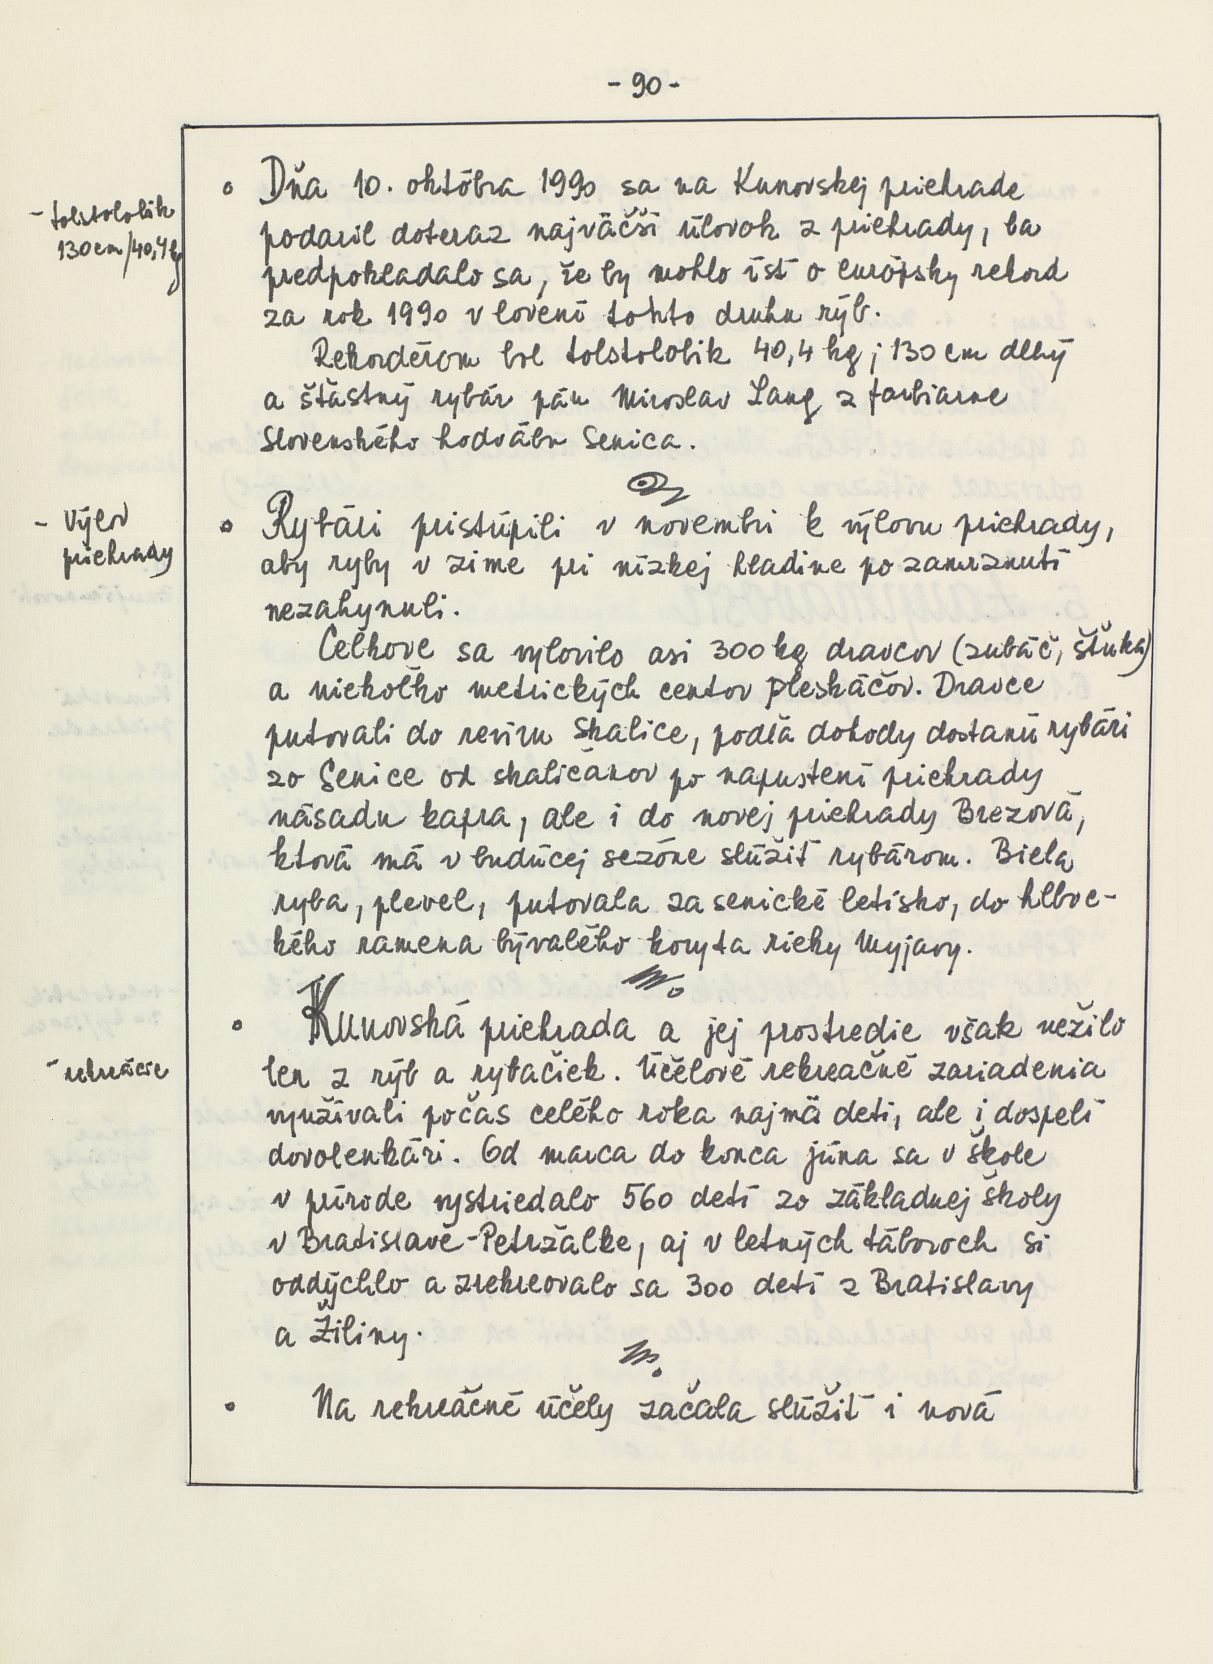 - 90 -
- tolstolobik
130 cm/40,4 kg
• Dňa 10. októbra 1990 sa na Kunovskej priehrade
podaril doteraz najväčší úlovok z priehrady, ba
predpokladalo sa, že by mohlo ísť o európsky rekord
za rok 1990 v lovení tohto druhu rýb.
Rekordérom bol tolstolobik 40,4 kg; 130 cm dlhý
a šťastný rybár pán Miroslav Lang z farbiarne
Slovenského hodvábu Senica.
- Výlov
priehrady
• Rybári pristúpili v novembri k výlovu priehrady,
aby ryby v zime pri nízkej hladine po zamrznutí
nezahynuli.
Celkove sa vylovilo asi 300 kg dravcov (zubáč, šťuka)
a niekoľko metrických centov pleskáčov. Dravce
putovali do revíru Skalice, podľa dohody dostanú rybári
zo Senice od skaličanov po napustení priehrady
násadu kapra, ale i do novej priehrady Brezová,
ktorá má v budúcej sezóne slúžiť rybárom. Biela
ryba, plevel, putovala za senické letisko, do hlboc-
kého ramena bývalého koryta rieky Myjavy.
- rekreácie
• Kunovská priehrada a jej prostredie však nežilo
len z rýb a rybačiek. Účelové rekreačné zariadenia
využívali počas celého roka najmä deti, ale i dospelí
dovolenkári. Od marca do konca júna sa v škole
v prírode vystriedalo 560 detí zo základnej školy
v Bratislave-Petržalke, aj v letných táboroch si
oddýchlo a zrekreovalo sa 300 detí z Bratislavy
a Žiliny.
• Na rekreačné účely začala slúžiť i nová